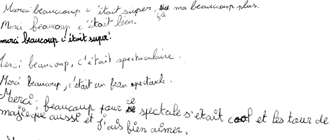 Merci beaucoup c'était super, ma beaucoup plus.
Merci beaucoup c'était bien.
merci beaucoup c'était super
Merci beaucoup, c'était spectaculaire.
Merci beaucoup, c'était un beau spectacle.
Merci, beaucoup pour ce spectale s'était cool et les tour de
magie aussi et j'ais bien aimer.